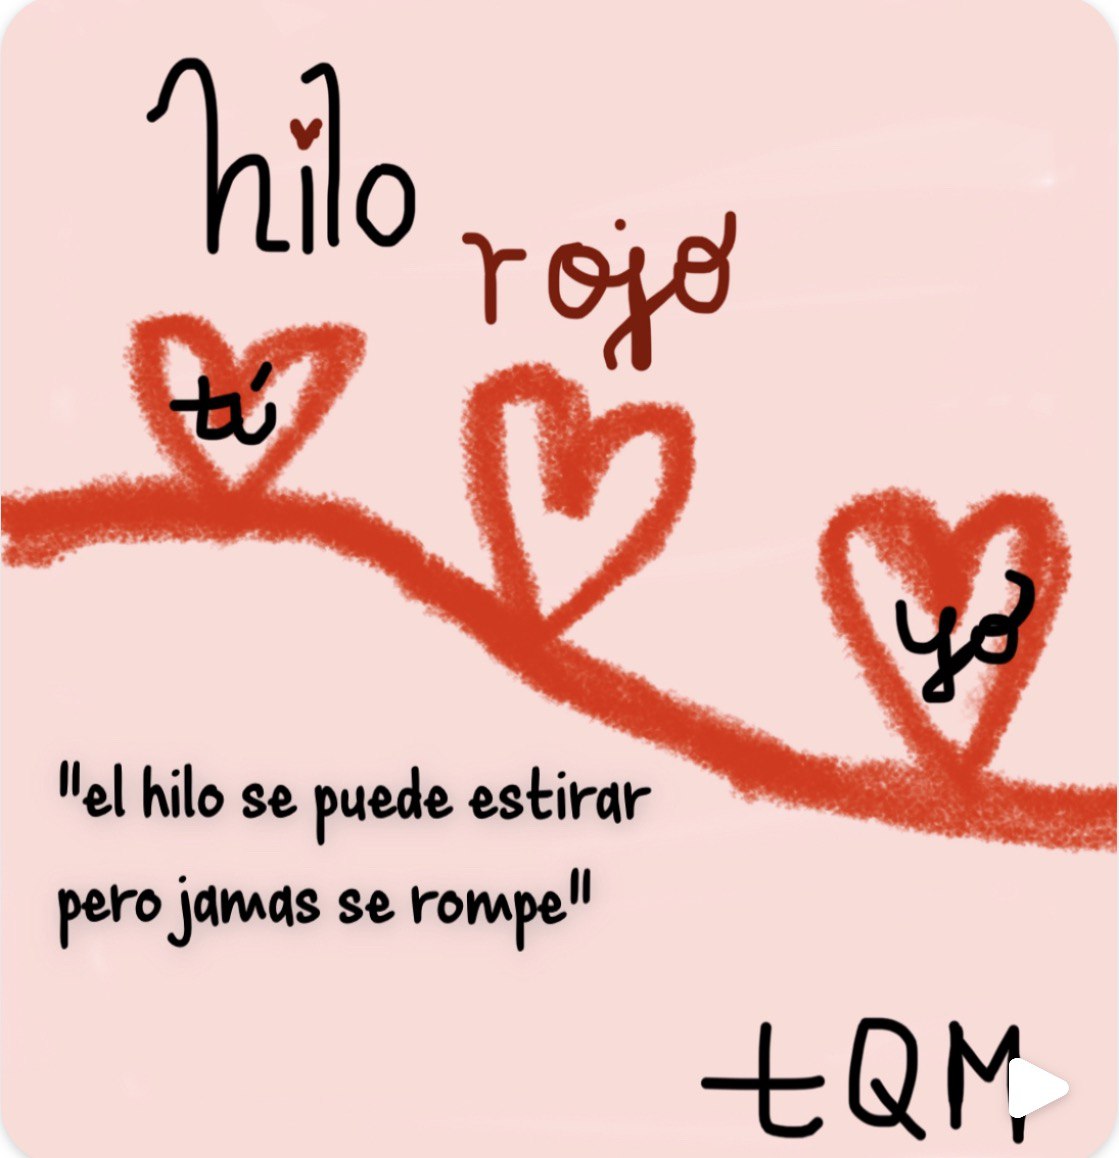 hilo
rojo
tú
yo
"el hilo se puede estirar
pero jamas se rompe"
tQM